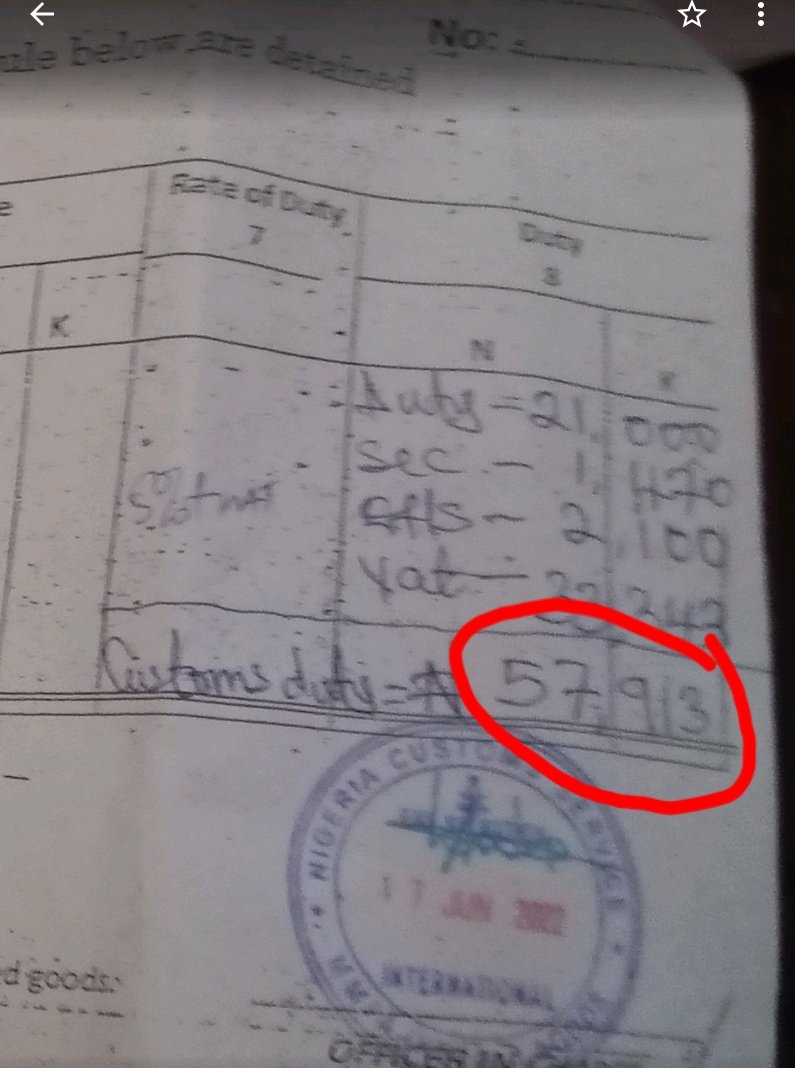 No:
ule below are detained
e
Rate of Duty
7
Duty
8
K
N
K
Duty = 21,000
Sec - 1,470
- 2,100
5%
Vat - 33,343
Customs duty = ₦ 57,913
NIGERIA CUSTOMS SERVICE
17 JUN 2022
INTERNATIONAL
d goods:
OFFICER IN